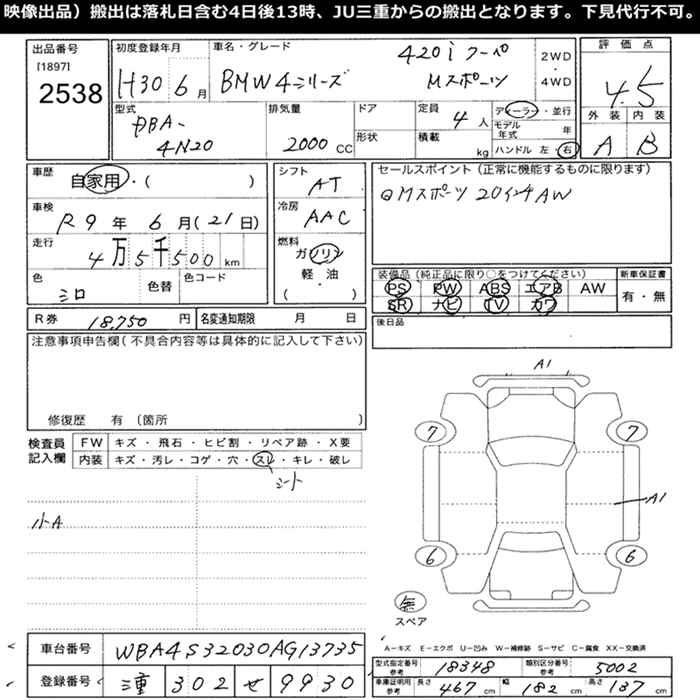 映像出品）搬出は落札日含む4日後13時、JU三重からの搬出となります。下見代行不可。
出品番号
[1897]
2538
初度登録年月
H30 6月
車名・グレード
BMW4シリーズ
420i クーペ
Mスポーツ
2WD
・
4WD
評価点
4.5
外装 内装
A B
型式
DBA-
4N20
排気量
2000 CC
ドア
形状
定員
4 人
積載
kg
ディーラー・並行
モデル年式 年
ハンドル 左・右
車歴
自家用・( )
車検
R9年 6月(21日)
走行
4万5千500km
色
シロ
色替
色コード
シフト
AT
冷房
AAC
燃料
ガソリン
軽・油
( )
セールスポイント（正常に機能するものに限ります）
Mスポーツ 20インチAW
装備品（純正品に限り○をつけてください）
PS PW ABS エアB AW
SR ナビ TV カワ
新車保証書
有・無
R券 18,750 円
名変通知期限 月 日
後日品
注意事項申告欄（不具合内容等は具体的に記入して下さい）
修復歴 有（箇所
検査員
記入欄
FW キズ・飛石・ヒビ割・リペア跡・X要
内装 キズ・汚レ・コゲ・穴・スレ・キレ・破レ
シート
小A
A1
7 7
A1
6 6
無
スペア
A－キズ E－エクボ U－凹み W－補修跡 S－サビ C－腐食 XX－交換済
車台番号 WBA4S32030AG13735
登録番号 三重 302 せ 9930
型式指定番号 参考 18348
類別区分番号 参考 5002
車庫証明用 参考 長さ 467 cm 幅 182 cm 高さ 137 cm